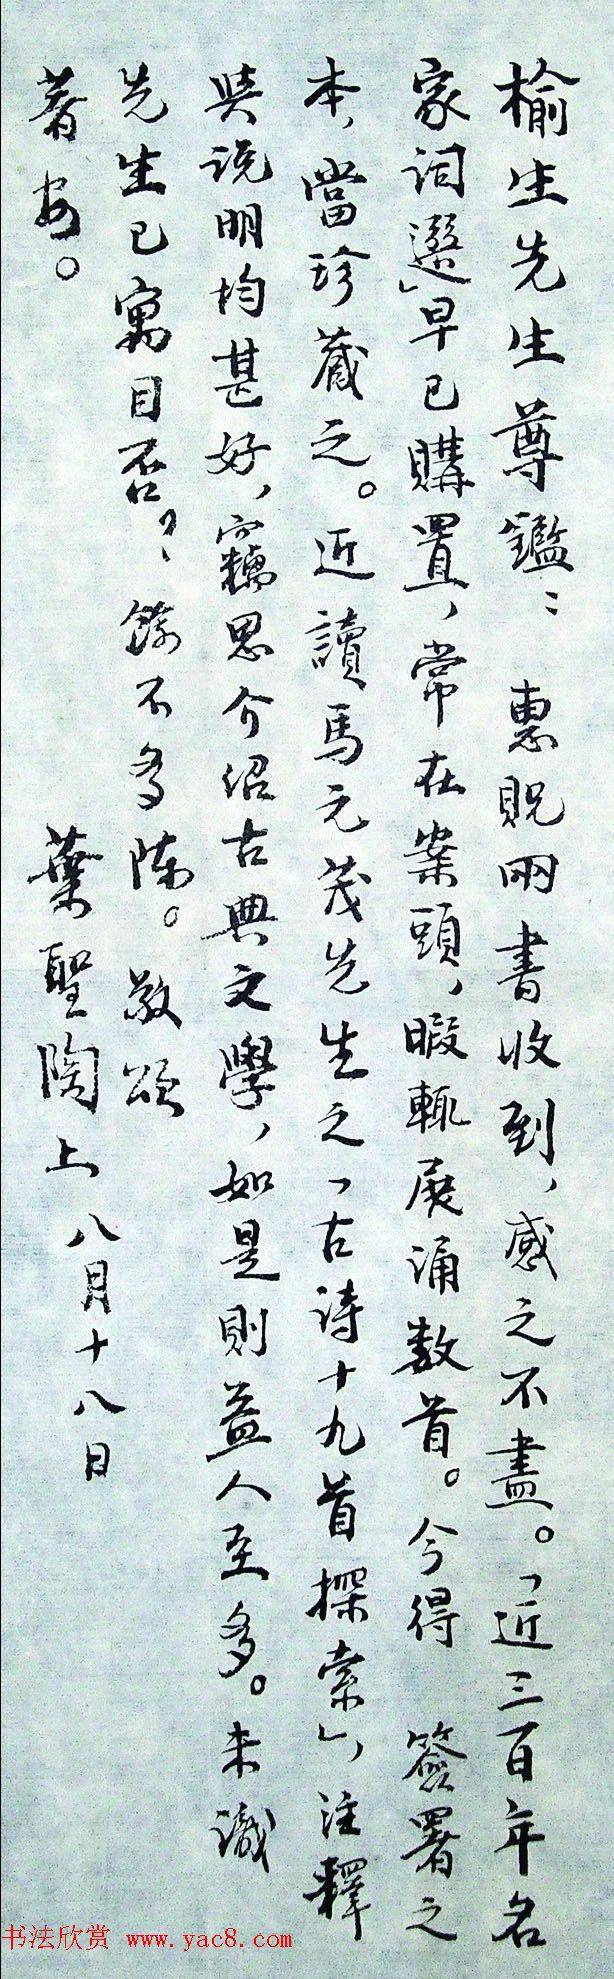 榆生先生尊鑑：　惠貺兩書收到，感之不盡。「近三百年名
家詞選」早已購置，常在案頭，暇輒展誦数首。今得　簽署之
本，當珍藏之。近讀馬元茂先生之「古诗十九首探索」，注釋
與说明均甚好，竊思介绍古典文學，如是則益人至多。未識
先生已寓目否？餘不多陳。敬頌
著安。　　葉聖陶上　八月十八日
书法欣赏 www.yac8.com